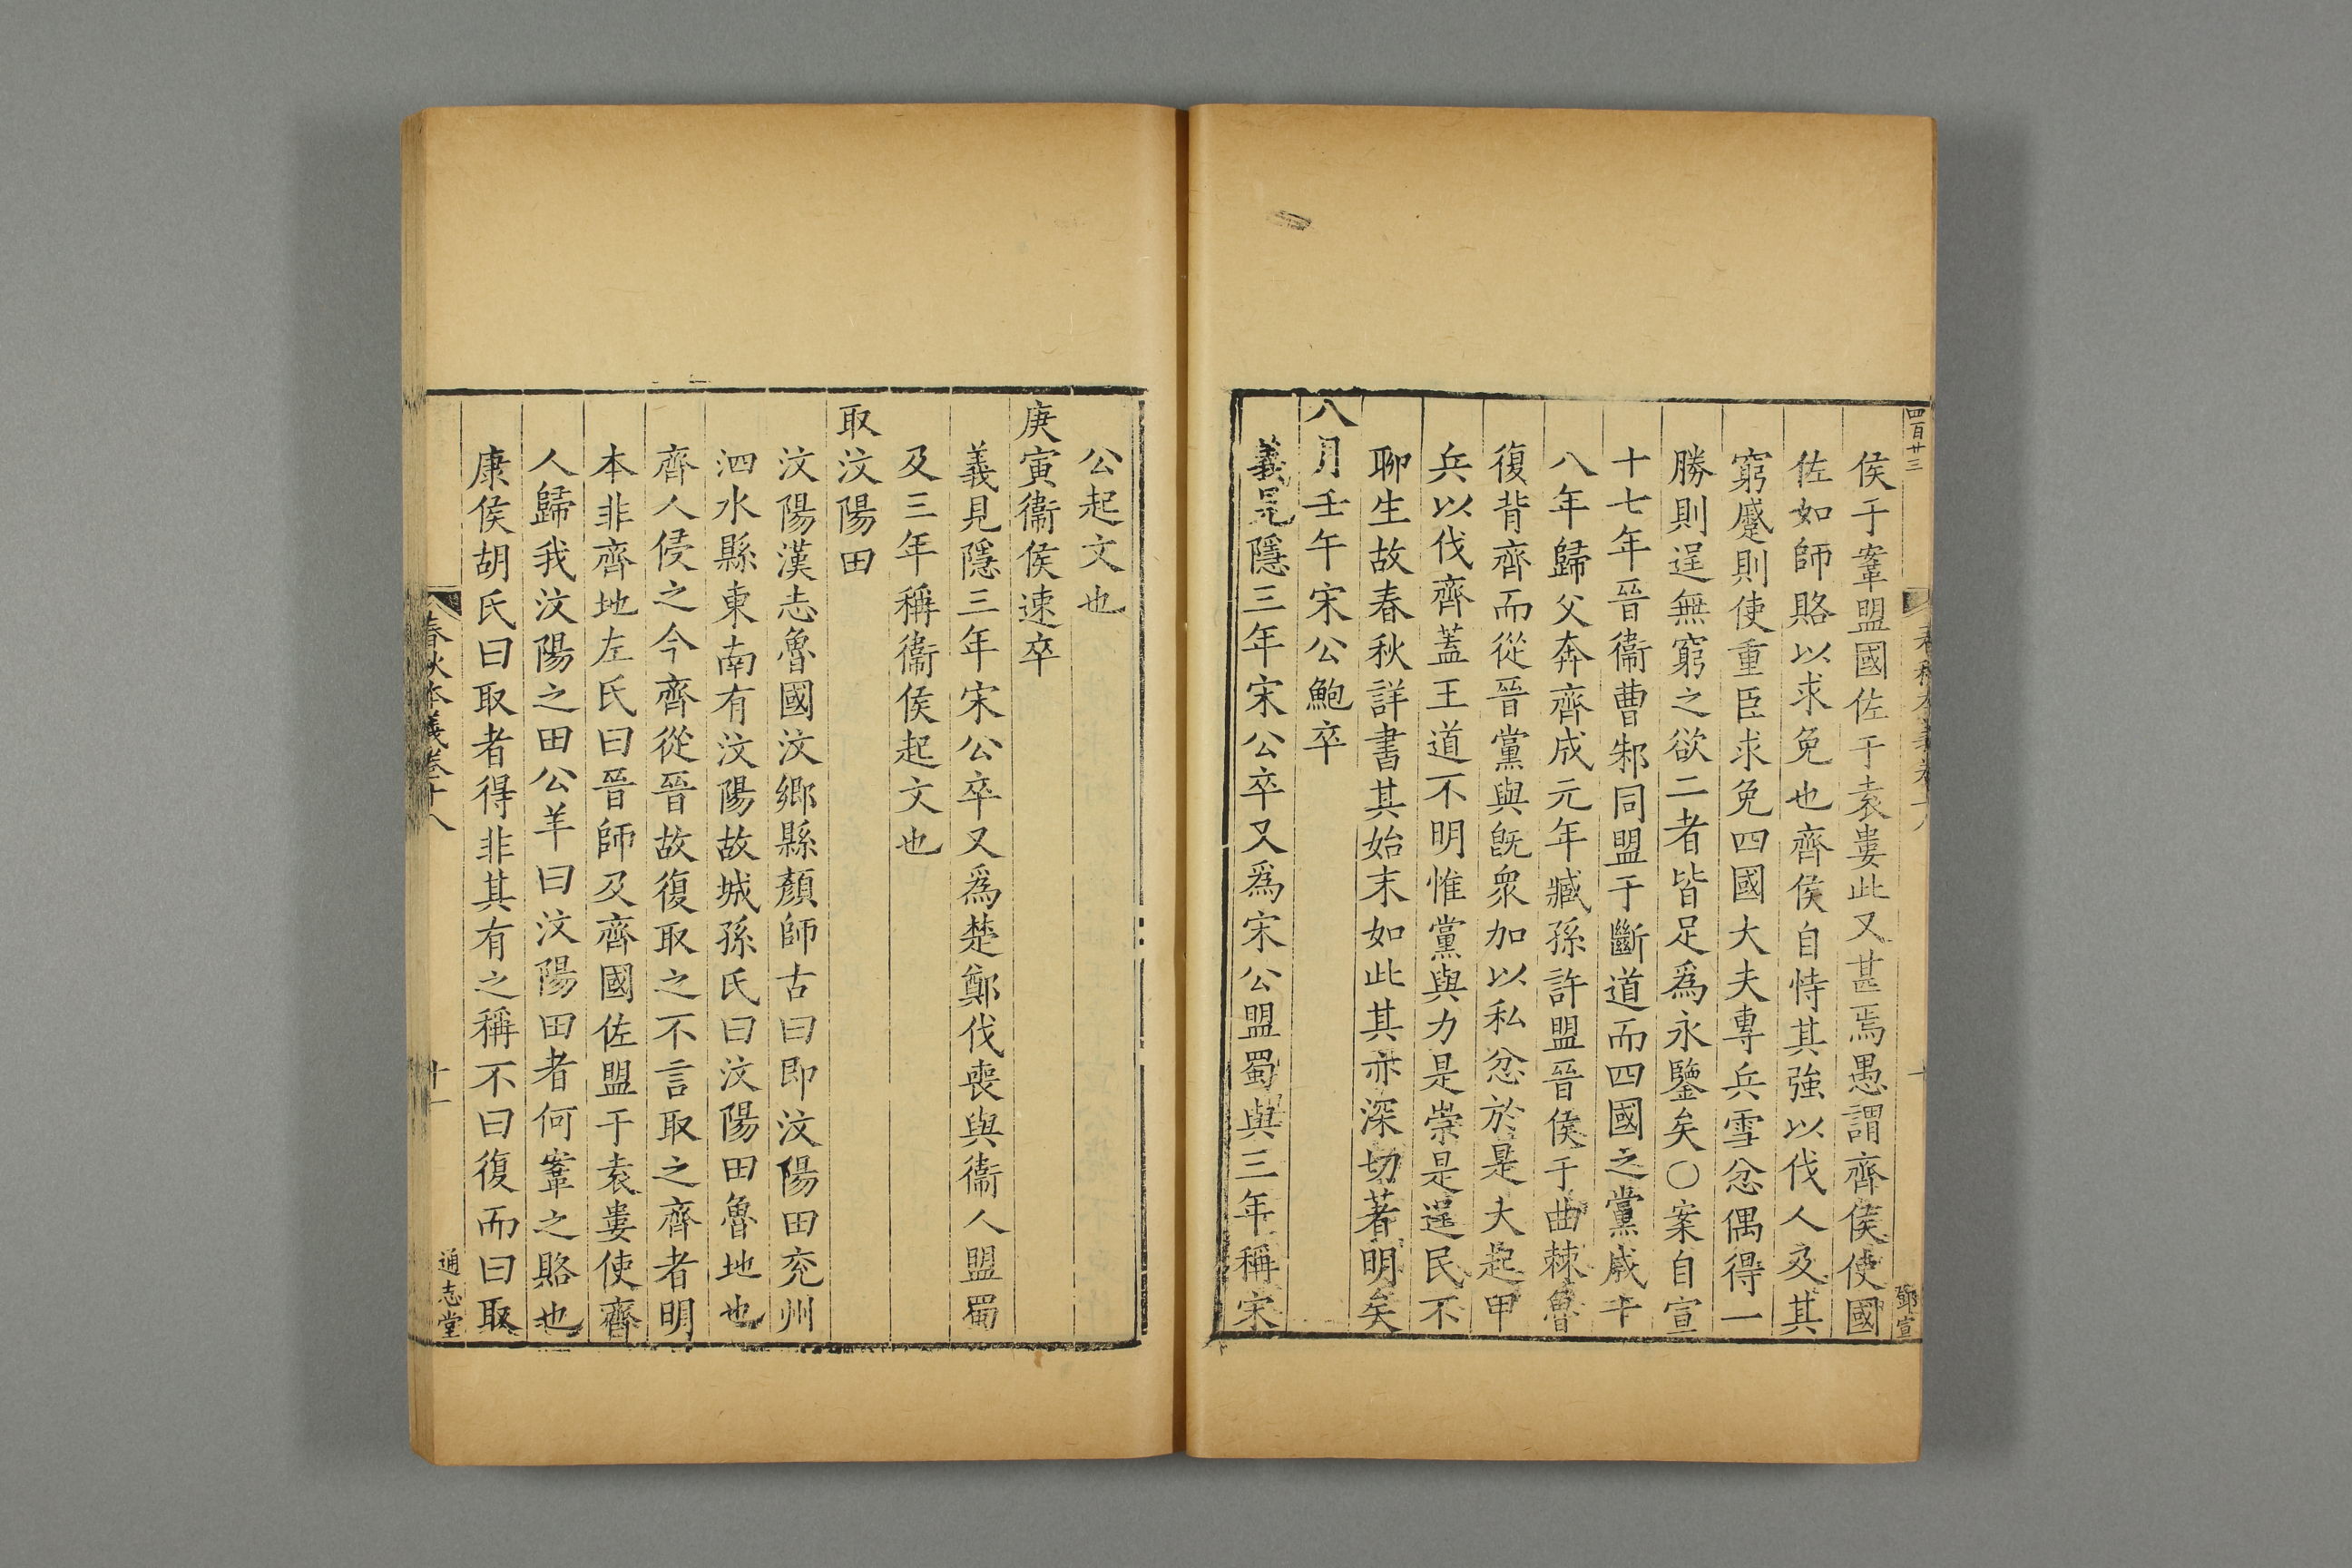 四百廿三
鄧宣
侯于鞌盟國佐于袁婁此又甚焉愚謂齊侯使國
佐如師賂以求免也齊侯自恃其強以伐人及其
窮蹙則使重臣求免四國大夫專兵雪忿偶得一
勝則逞無窮之欲二者皆足爲永鑒矣○案自宣
十七年晉衞曹邾同盟于斷道而四國之黨成十
八年歸父奔齊成元年臧孫許盟晉侯于曲棘魯
復背齊而從晉黨與旣衆加以私忿於是大起甲
兵以伐齊蓋王道不明惟黨與力是崇是逞民不
聊生故春秋詳書其始末如此其亦深切著明矣
八月壬午宋公鮑卒
義見隱三年宋公卒又爲宋公盟蜀與三年稱宋
公起文也
庚寅衞侯速卒
義見隱三年宋公卒又爲楚鄭伐喪與衞人盟蜀
及三年稱衞侯起文也
取汶陽田
汶陽漢志魯國汶鄉縣顏師古曰即汶陽田兗州
泗水縣東南有汶陽故城孫氏曰汶陽田魯地也
齊人侵之今齊從晉故復取之不言取之齊者明
本非齊地左氏曰晉師及齊國佐盟于袁婁使齊
人歸我汶陽之田公羊曰汶陽田者何鞌之賂也
康侯胡氏曰取者得非其有之稱不曰復而曰取
春秋本義卷十八
十一
通志堂